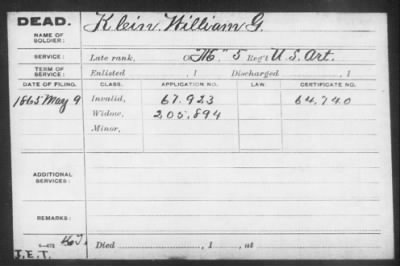 DEAD.
NAME OF SOLDIER: Klein, William G.
SERVICE: Late rank, Co "M." 5 Reg't U.S. Art.
TERM OF SERVICE: Enlisted , 1 Discharged , 1
DATE OF FILING. CLASS. APPLICATION NO. LAW. CERTIFICATE NO.
1865 May 9 Invalid, 67.923 64,740
Widow, 205,894
Minor,
ADDITIONAL SERVICES:
REMARKS:
Died , 1 , at
J.E.T.